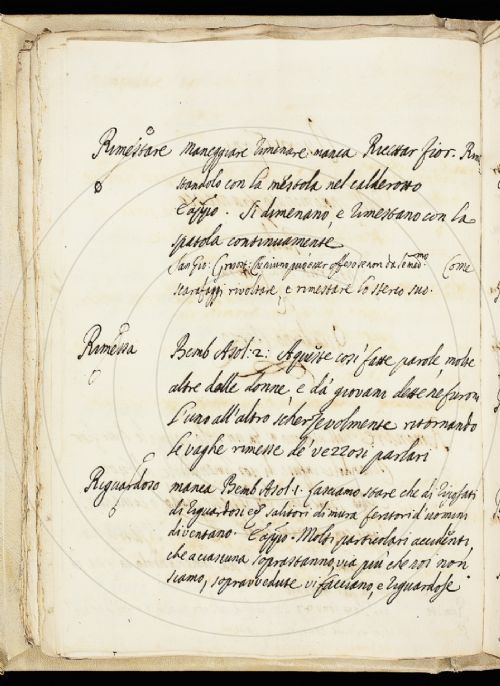 Rimestare maneggiare rimenare manca Ricettar fior. Rime
standolo con la mestola nel calderotto
E appo. Si dimenano, e rimestano con la
spatola continuamente
San Gio: Grisost: Che niuno può esser offeso se non da se med.mo Come
scarafaggi rivoltare, e rimestare lo sterco suo.
Rimessa Bemb Asol: 2: A queste così fatte parole, molte
altre dalle donne, e da' giovani dette ne furon
l'uno all'altro scherzevolmente ritornando
le vaghe rimesse de' vezzosi parlari
Riguardoso manca Bemb Asol: 1. facciamo stare che di
di riguardosi salitori di mura feratori d'uomini
diventano. E appo. Molti particolari accidenti,
che a ciascuna soprastanno, via più che noi non
siamo, sopravvedute vi facciano, e riguardose